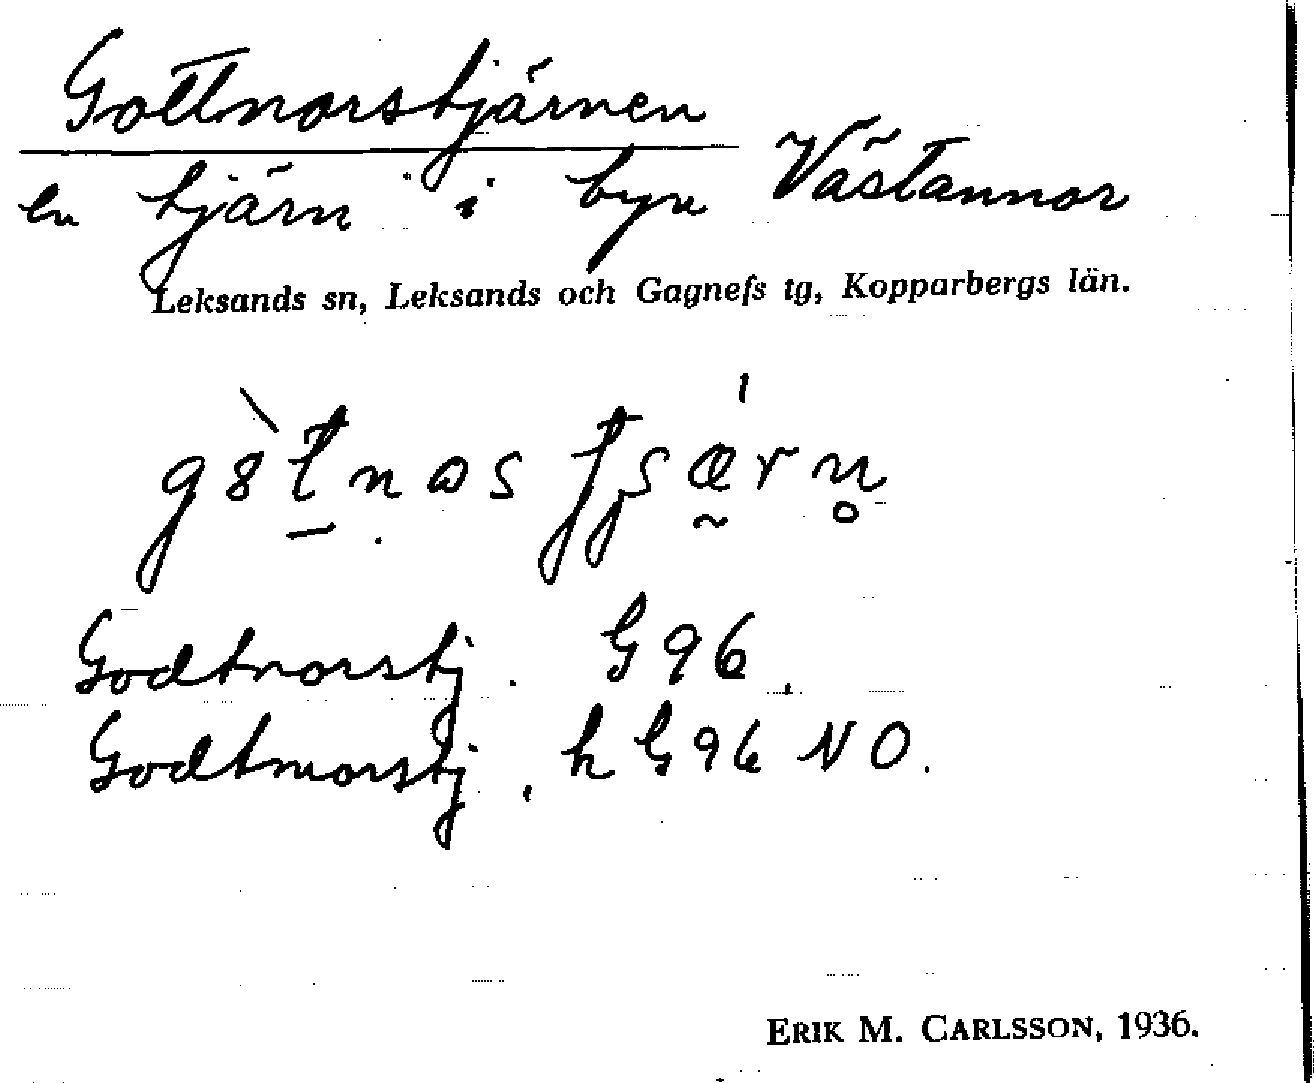 Gottnorstjärnen
en tjärn i byn Västannor
Leksands sn, Leksands och Gagnefs tg, Kopparbergs län.
Godtnorstj. G 96.
Godtnorstj. h G 96 NO.
ERIK M. CARLSSON, 1936.